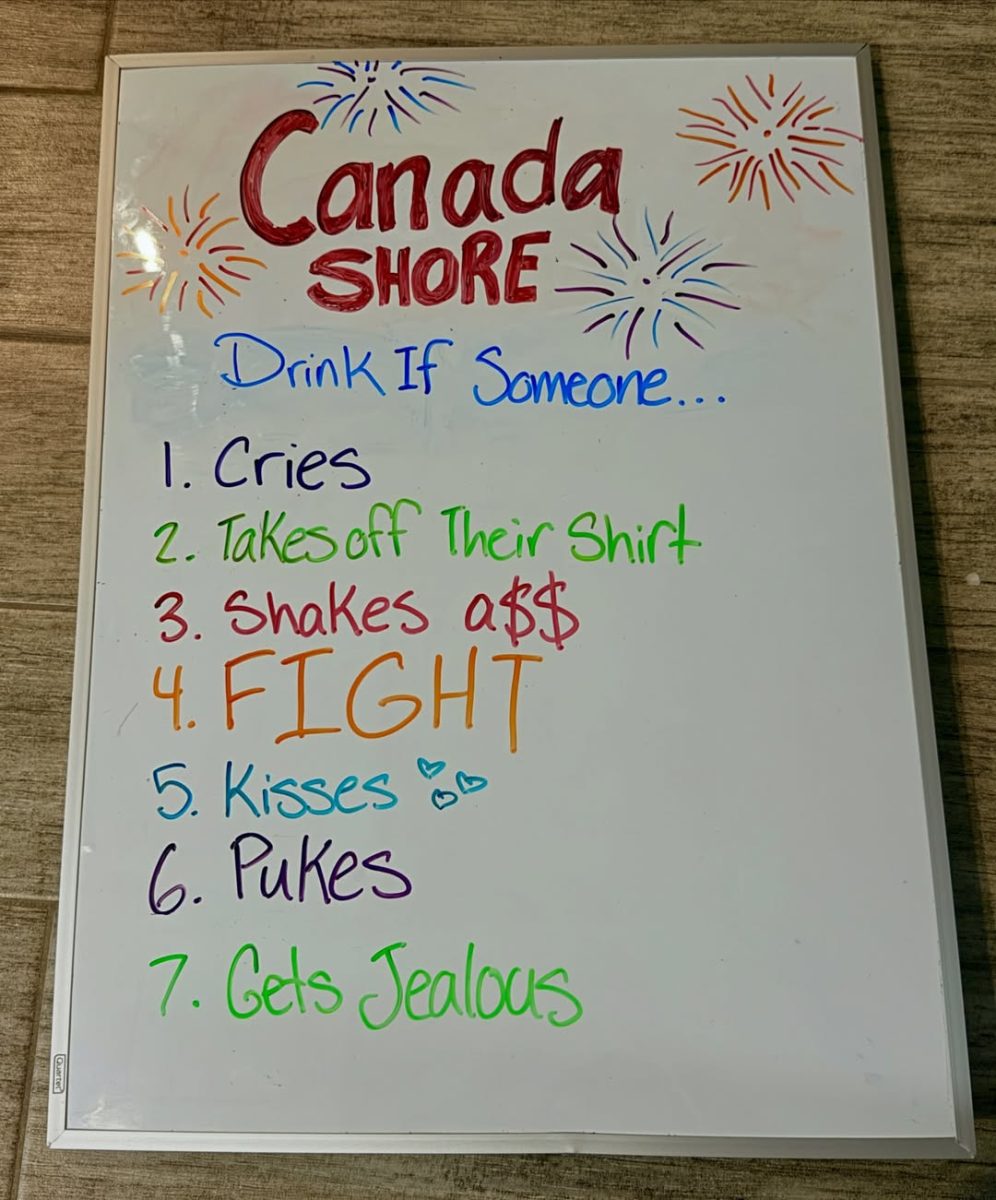 Canada
SHORE
Drink If Someone...
1. Cries
2. Takes off Their Shirt
3. Shakes a$$
4. FIGHT
5. Kisses
6. Pukes
7. Gets Jealous
Quartet